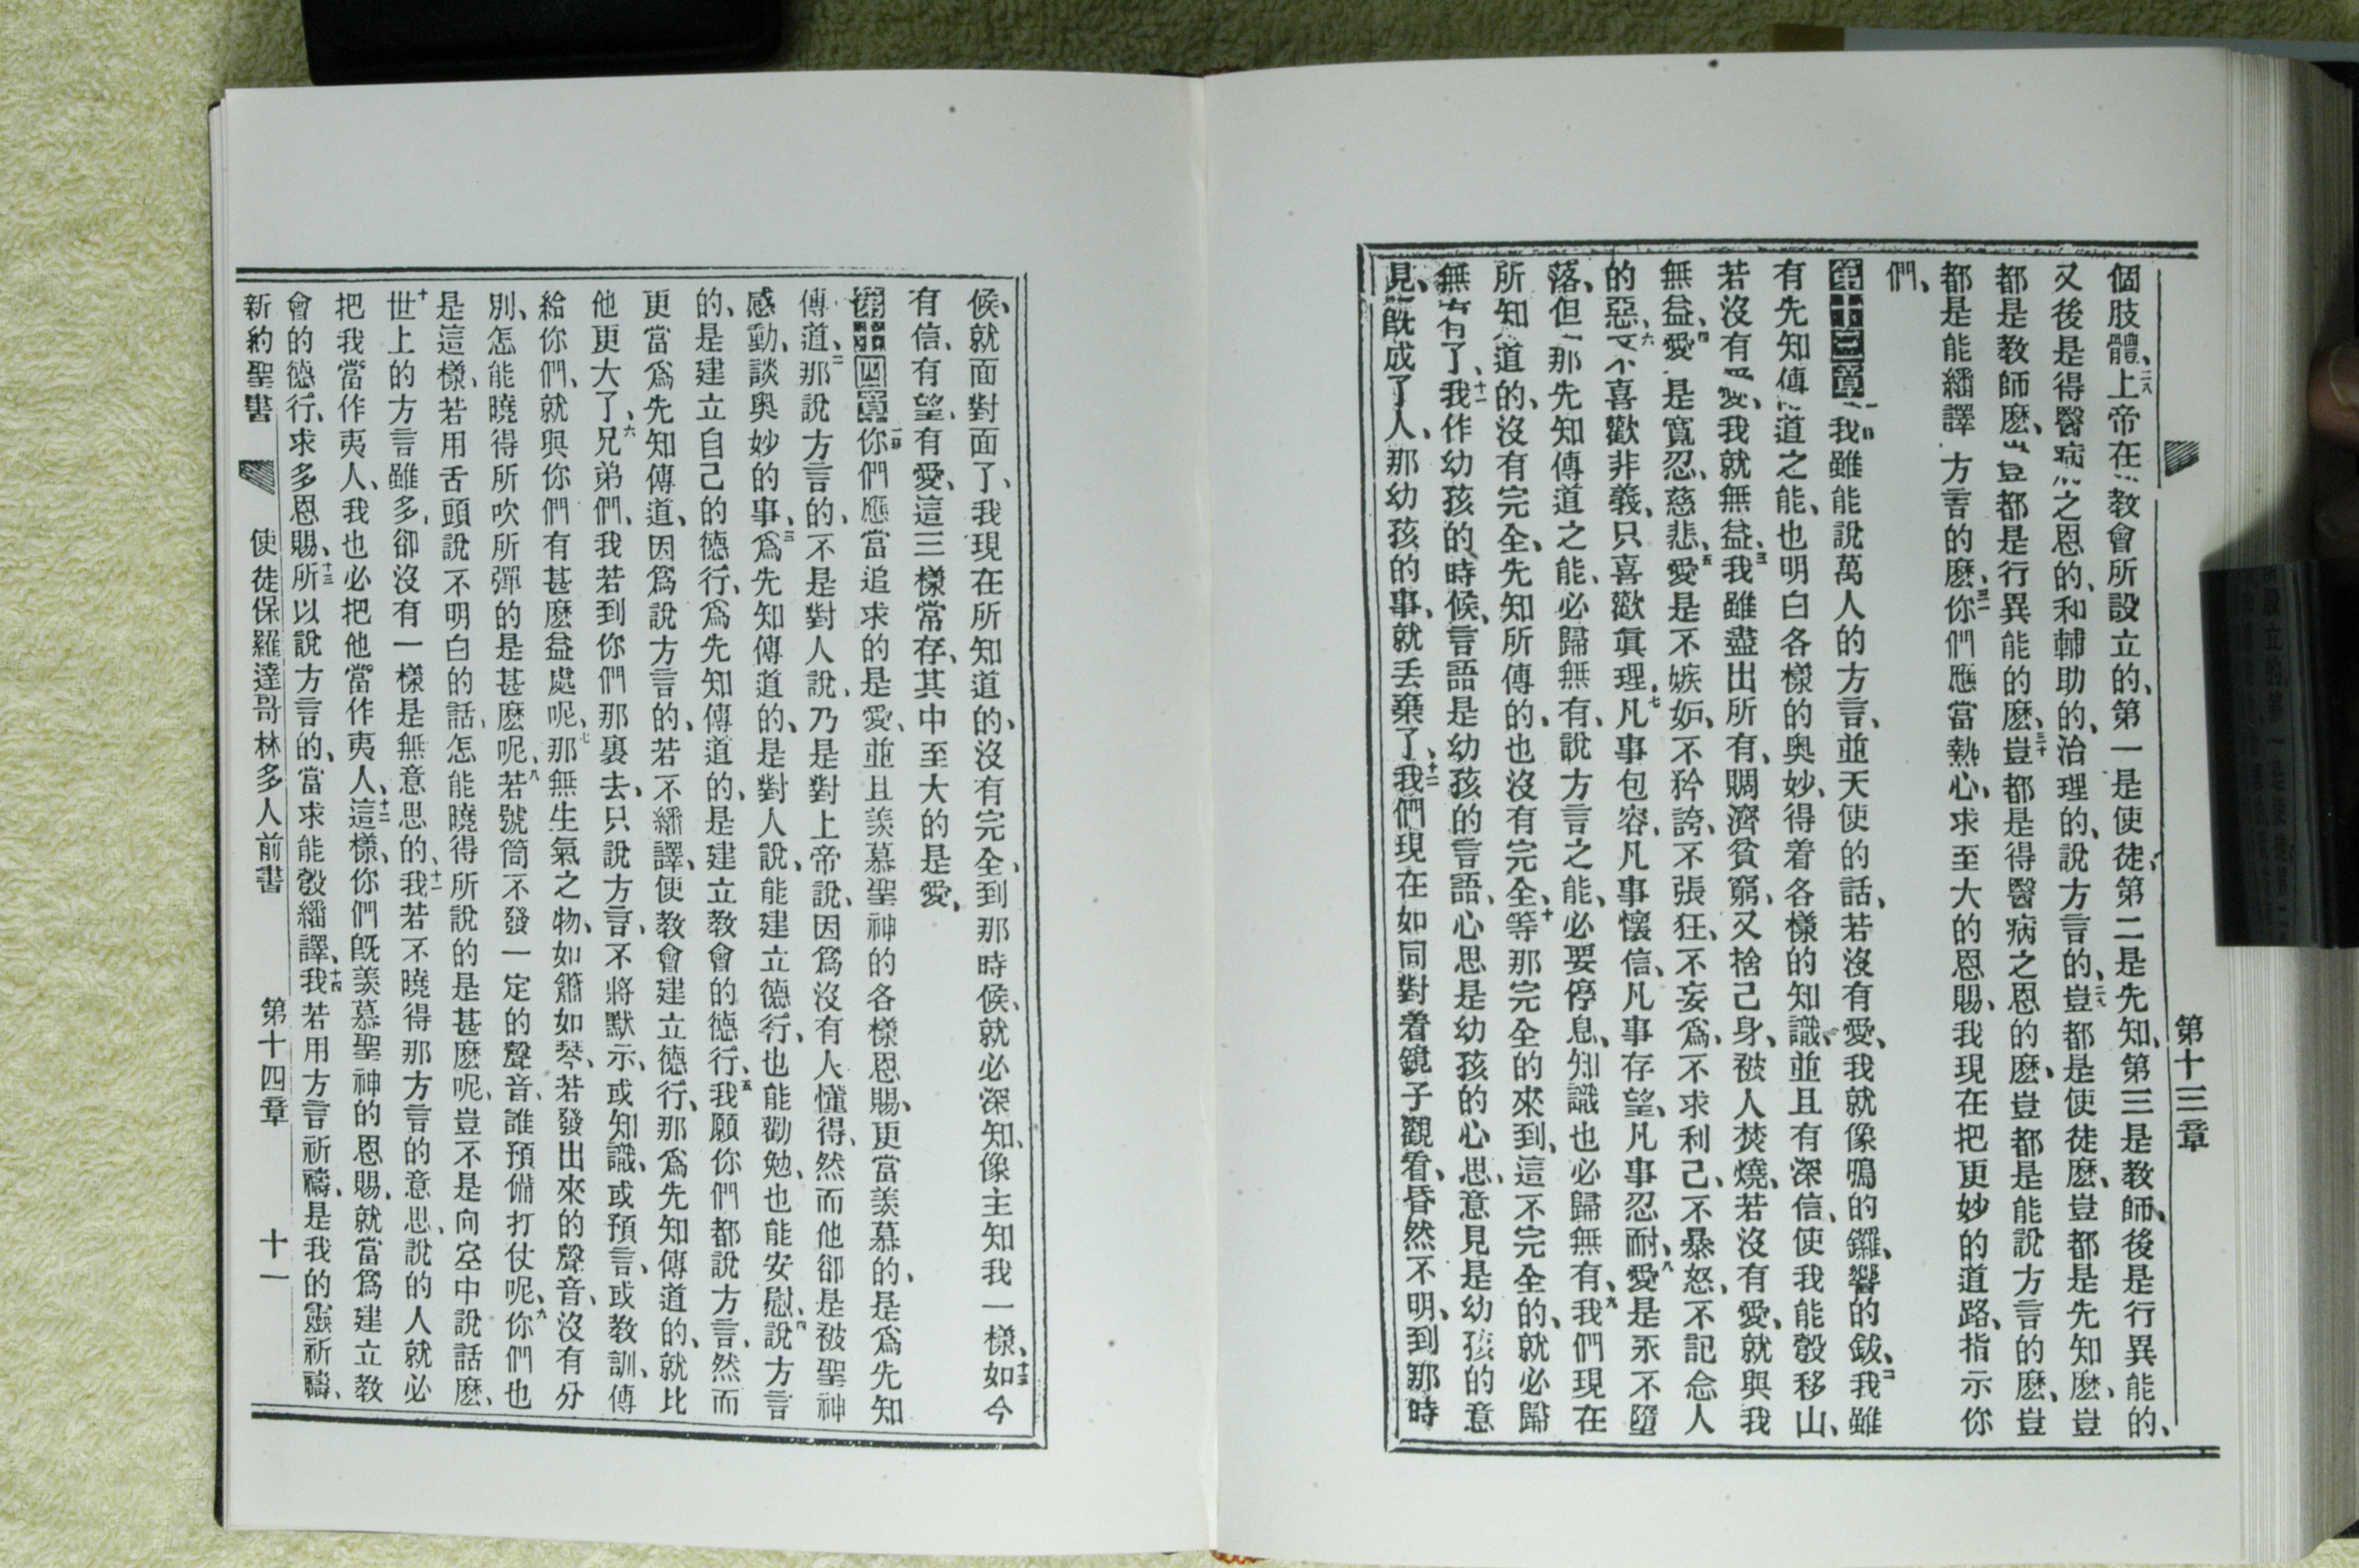 第十三章
個肢體、二八上帝在教會所設立的、第一是使徒、第二是先知、第三是教師、後是行異能的、
又後是得醫病之恩的、和輔助的、治理的、說方言的、二九豈都是使徒麽、豈都是先知麽、豈
都是教師麽、豈都是行異能的麽、三十豈都是得醫病之恩的麽、豈都是能說方言的麽、豈
都是能繙譯方言的麽、三一你們應當熱心、求至大的恩賜、我現在把更妙的道路、指示你
們、
第十三章 一我雖能說萬人的方言、並天使的話、若沒有愛、我就像鳴的鑼、響的鈸、二我雖
有先知傳道之能、也明白各樣的奧妙、得着各樣的知識、並且有深信、使我能彀移山、
若沒有愛、我就無益、三我雖盡出所有、賙濟貧窮、又捨己身、被人焚燒、若沒有愛、就與我
無益、四愛是寬忍、慈悲、五愛是不嫉妒、不矜誇、不張狂、不妄爲、不求利己、不暴怒、不記念人
的惡、六不喜歡非義、只喜歡眞理、七凡事包容、凡事懷信、凡事存望、凡事忍耐、八愛是永不墮
落、但那先知傳道之能、必歸無有、說方言之能、必要停息、知識也必歸無有、九我們現在
所知道的、沒有完全、先知所傳的、也沒有完全、十等那完全的來到、這不完全的、就必歸
無有了、十一我作幼孩的時候、言語是幼孩的言語、心思是幼孩的心思、意見是幼孩的意
見、旣成了人、那幼孩的事、就丢棄了、十二我們現在如同對着鏡子觀看、昏然不明、到那時
候、就面對面了、我現在所知道的、沒有完全、到那時候、就必深知、像主知我一樣、十三如今
有信、有望、有愛、這三樣常存、其中至大的是愛、
第十四章 一你們應當追求的是愛、並且羨慕聖神的各樣恩賜、更當羨慕的、是爲先知
傳道、二那說方言的、不是對人說、乃是對上帝說、因爲沒有人懂得、然而他卻是被聖神
感動、談奧妙的事、三爲先知傳道的、是對人說、能建立德行、也能勸勉、也能安慰、四說方言
的、是建立自己的德行、爲先知傳道的、是建立教會的德行、五我願你們都說方言、然而
更當爲先知傳道、因爲說方言的、若不繙譯、使教會建立德行、那爲先知傳道的、就比
他更大了、六兄弟們、我若到你們那裏去、只說方言、不將默示、或知識、或預言、或教訓、傳
給你們、就與你們有甚麽益處呢、七那無生氣之物、如簫如琴、若發出來的聲音、沒有分
別、怎能曉得所吹所彈的是甚麽呢、八若號筒不發一定的聲音、誰預備打仗呢、九你們也
是這樣、若用舌頭說不明白的話、怎能曉得所說的是甚麽呢、豈不是向空中說話麽、
十世上的方言雖多、卻沒有一樣是無意思的、十一我若不曉得那方言的意思、說的人就必
把我當作夷人、我也必把他當作夷人、十二這樣、你們旣羨慕聖神的恩賜、就當爲建立教
會的德行、求多恩賜、十三所以說方言的、當求能彀繙譯、十四我若用方言祈禱、是我的靈祈禱、
新約聖書 使徒保羅達哥林多人前書 第十四章 十一